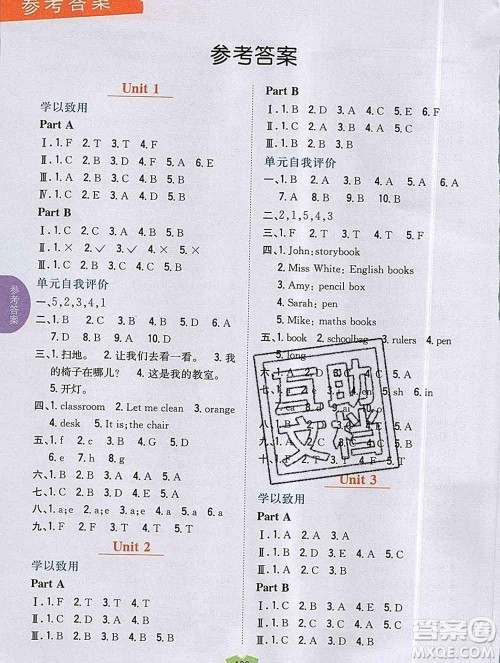 参考答案
参考答案
Unit 1
学以致用
Part A
Ⅰ.1.F 2.T 3.T 4.F
Ⅱ.1.C 2.B 3.D 4.F 5.A 6.E
Ⅲ.1.B 2.B 3.A 4.B 5.A
Ⅳ.1.C 2.D 3.A 4.E 5.B
Part B
Ⅰ.1.C 2.A 3.C 4.B 5.A
Ⅱ.1.× 2.✓ 3.✓ 4.× 5.×
Ⅲ.1.D 2.C 3.B 4.E 5.A
单元自我评价
一、5,2,3,4,1
二、1.B 2.A 3.A 4.B 5.B
三、1.扫地。 2.让我们去看一看。 3.我
的椅子在哪儿? 4.这是我的教室。
5.开灯。
四、1.classroom 2.Let me clean 3.orange
4.desk 5.It is;the chair
五、1.f 2.c 3.a 4.g 5.b
6.e 7.h 8.d
六、1.B 2.A 3.A 4.B 5.B
七、1.B 2.A 3.C 4.D 5.E
八、1.a;e 2.a;e 3.a 4.a;e 5.a
九、1.F 2.T 3.F 4.F 5.T
Unit 2
学以致用
Part A
Ⅰ.1.F 2.T 3.T 4.T
Ⅱ.1.B 2.A 3.E 4.C 5.D
Ⅲ.1.B 2.A 3.B 4.B 5.A
Part B
Ⅰ.1.B 2.D 3.A 4.C
Ⅱ.1.B 2.C 3.D 4.E 5.A
Ⅲ.1.F 2.F 3.T 4.F 5.F
单元自我评价
一、1.B 2.A 3.B 4.A 5.B 6.A
7.A 8.B 9.A 10.B
二、2,1,5,4,3
三、1.F 2.T 3.F 4.T 5.F
四、1.John;storybook
2.Miss White;English books
3.Amy;pencil box
4.Sarah;pen
5.Mike;maths book
五、1.book 2.schoolbag 3.rulers 4.pen
5.long
Unit 3
学以致用
Part A
Ⅰ.1.B 2.D 3.A 4.E 5.C
Ⅱ.1.C 2.B 3.A 4.A 5.C
Ⅲ.1.C 2.A 3.D 4.E 5.B
Part B
Ⅰ.1.A 2.A 3.B 4.A 5.B
Ⅱ.1.B 2.C
参考答案
互助文档
答案圈
MXQE.COM